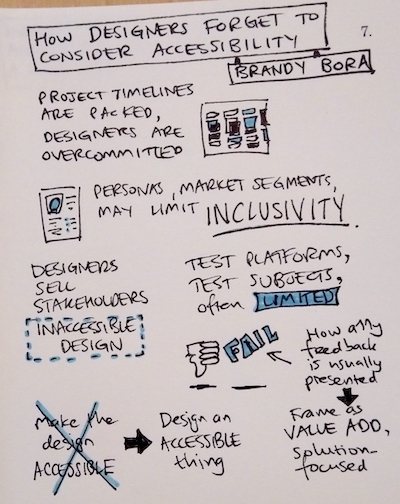 HOW DESIGNERS FORGET TO
CONSIDER ACCESSIBILITY
7.
BRANDY BORA
PROJECT TIMELINES
ARE PACKED,
DESIGNERS ARE
OVERCOMMITTED
PERSONAS, MARKET SEGMENTS,
MAY LIMIT INCLUSIVITY.
DESIGNERS
SELL
STAKEHOLDERS
INACCESSIBLE
DESIGN
TEST PLATFORMS,
TEST SUBJECTS,
often LIMITED
FAIL
How a11y
feedback
is usually
presented
Make the
design
ACCESSIBLE
Design an
ACCESSIBLE
thing
Frame as
VALUE ADD,
solution-
focused